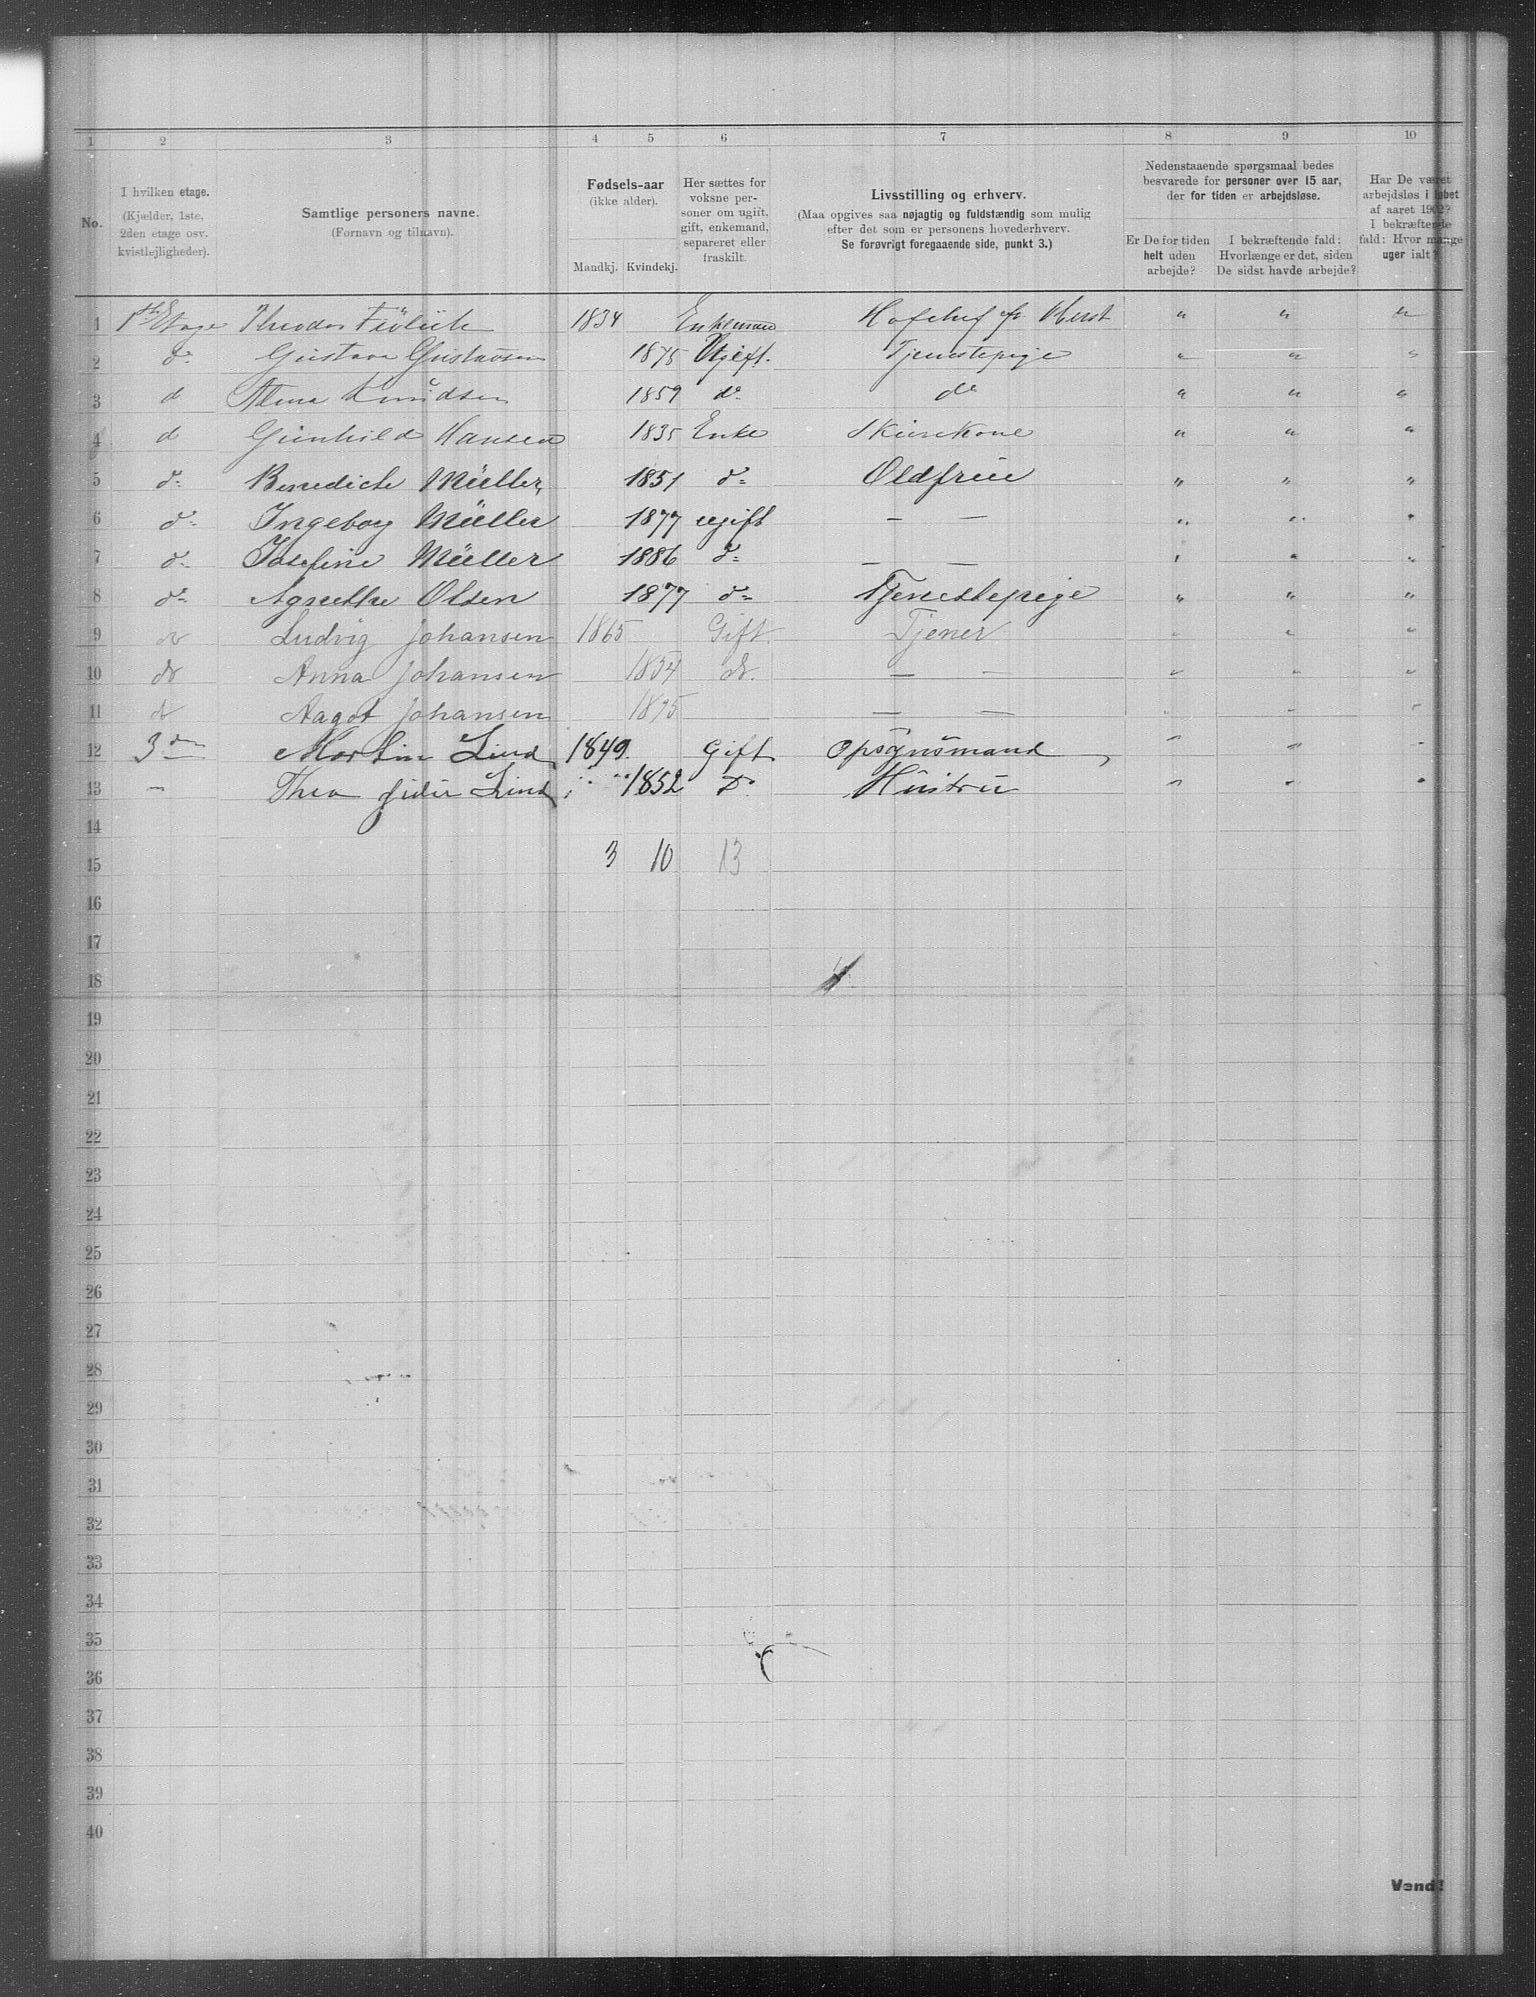 1 2 3 4 5 6 7 8 9 10
No.
I hvilken etage.
(Kjælder, 1ste,
2den etage osv.
kvistlejligheder).
Samtlige personers navne.
(Fornavn og tilnavn).
Fødsels-aar
(ikke alder).
Mandkj. Kvindekj.
Her sættes for
voksne per-
soner om ugift,
gift, enkemand,
separeret eller
fraskilt.
Livsstilling og erhverv.
(Maa opgives saa nøjagtig og fuldstændig som mulig
efter det som er personens hovederhverv.
Se forøvrigt foregaaende side, punkt 3.)
Nedenstaaende spørgsmaal bedes
besvarede for personer over 15 aar,
der for tiden er arbejdsløse.
Er De for tiden
helt uden
arbejde?
I bekræftende fald:
Hvorlænge er det, siden
De sidst havde arbejde?
Har De været
arbejdsløs i løbet
af aaret 1902?
I bekræftende
fald: Hvor mange
uger ialt?
1 1ste Etage Theodor Frölich 1834 Enkemand Hofchef Oberst " " "
2 do Gustava Gustavsen 1875 Ugift. Tjenestepige " " "
3 d Knudsen 1859 do do " " "
4 d Gunhild Hansen 1835 Enke Skurekone " " "
5 do Benedicte Müller 1851 do Oldfrue " " "
6 do Ingeborg Müller 1877 ugift — — " " "
7 do Josefine Müller 1886 do — — " " "
8 do Agnethe Olsen 1877 do Tjenestepige " " "
9 do Ludvig Johansen 1865 Gift. Tjener " " "
10 do Anna Johansen 1854 do. — — " " "
11 d Aagot Johansen 1895 — — " " "
12 3die Martin Lind 1849. Gift opsynsmand " " "
13 — Thea Lind 1852 Do Hustru " " "
14
15 3 10 13
16
17
18
19
20
21
22
23
24
25
26
27
28
29
30
31
32
33
34
35
36
37
38
39
40
Vend!